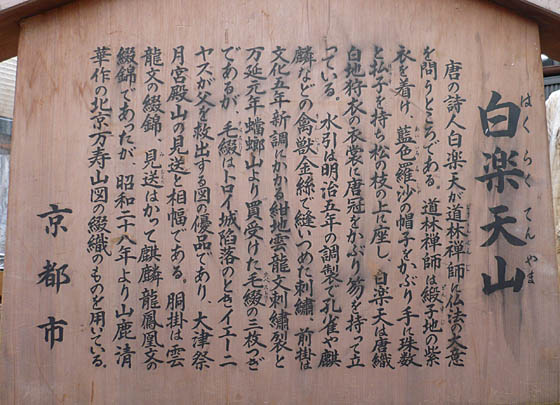 白楽天山
はくらくてんやま
唐の詩人白楽天が道林禅師に仏法の大意
を問うところである。道林禅師は緞子地の紫
衣を着け、藍色羅沙の帽子をかぶり手に珠数
と払子を持ち松の枝の上に座し、白楽天は唐織
白地狩衣の衣裳に唐冠をかぶり笏を持って立
っている。水引は明治五年の調製で孔雀や麒
麟などの禽獣金絲で縫いつめた刺繍、前掛は
文化五年新調にかかる紺地雲龍文刺繍裂と
万延元年蟷螂山より買受けた毛綴の三枚つぎ
であるが、毛綴はトロイ城陥落のときイエーニ
ヤスが父を救出する図の優品であり、大津祭
月宮殿山の見送と相幅である。胴掛は雲
龍文の綴錦、見送はかって麒麟龍鳳凰文の
綴錦であったが、昭和二十八年より山鹿清
華作の北京万寿山図の綴織のものを用いている。
京都市